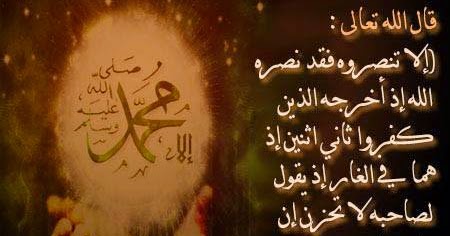 قال الله تعالى :
(إلا تنصروه فقد نصره
الله إذ أخرجه الذين
كفروا ثاني اثنين إذ
هما في الغار إذ يقول
لصاحبه لا تحزن إن
إلا
محمد
صلى الله عليه وسلم